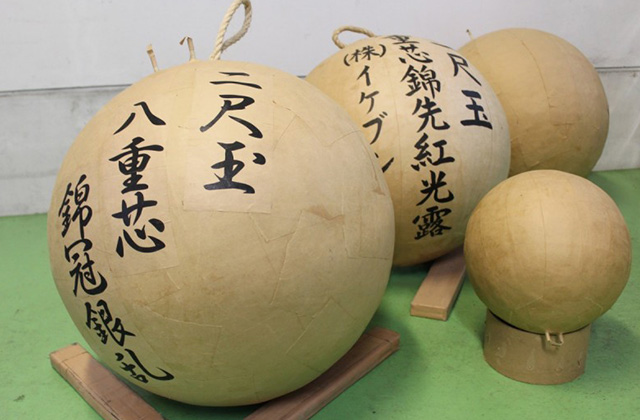 二尺玉
八重芯
錦冠銀乱
二尺玉
八重芯錦先紅光露
(株)イケブン